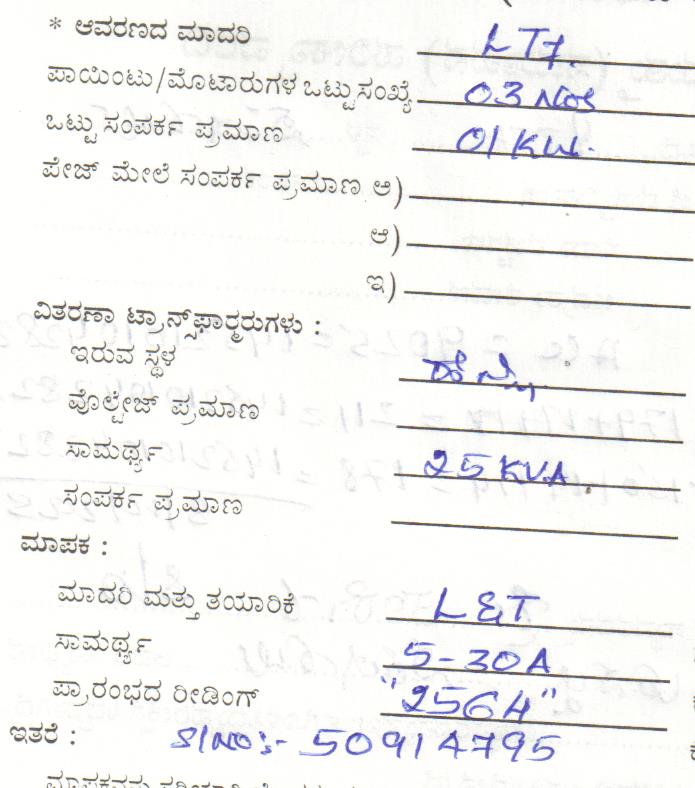 * ಆವರಣದ ಮಾದರಿ LT7.
ಪಾಯಿಂಟು/ಮೊಟಾರುಗಳ ಒಟ್ಟು ಸಂಖ್ಯೆ 03 Nos
ಒಟ್ಟು ಸಂಪರ್ಕ ಪ್ರಮಾಣ 01 KW.
ಪೇಜ್ ಮೇಲೆ ಸಂಪರ್ಕ ಪ್ರಮಾಣ ಅ)
ಆ)
ಇ)
ವಿತರಣಾ ಟ್ರಾನ್ಸ್‌ಫಾರ್‍ಮರುಗಳು :
ಇರುವ ಸ್ಥಳ
ವೊಲ್ಟೇಜ್ ಪ್ರಮಾಣ
ಸಾಮರ್ಥ್ಯ 25 KVA
ಸಂಪರ್ಕ ಪ್ರಮಾಣ
ಮಾಪಕ :
ಮಾದರಿ ಮತ್ತು ತಯಾರಿಕೆ L&T
ಸಾಮರ್ಥ್ಯ 5-30A
ಪ್ರಾರಂಭದ ರೀಡಿಂಗ್ "2564"
ಇತರೆ : Sl No:- 50914795